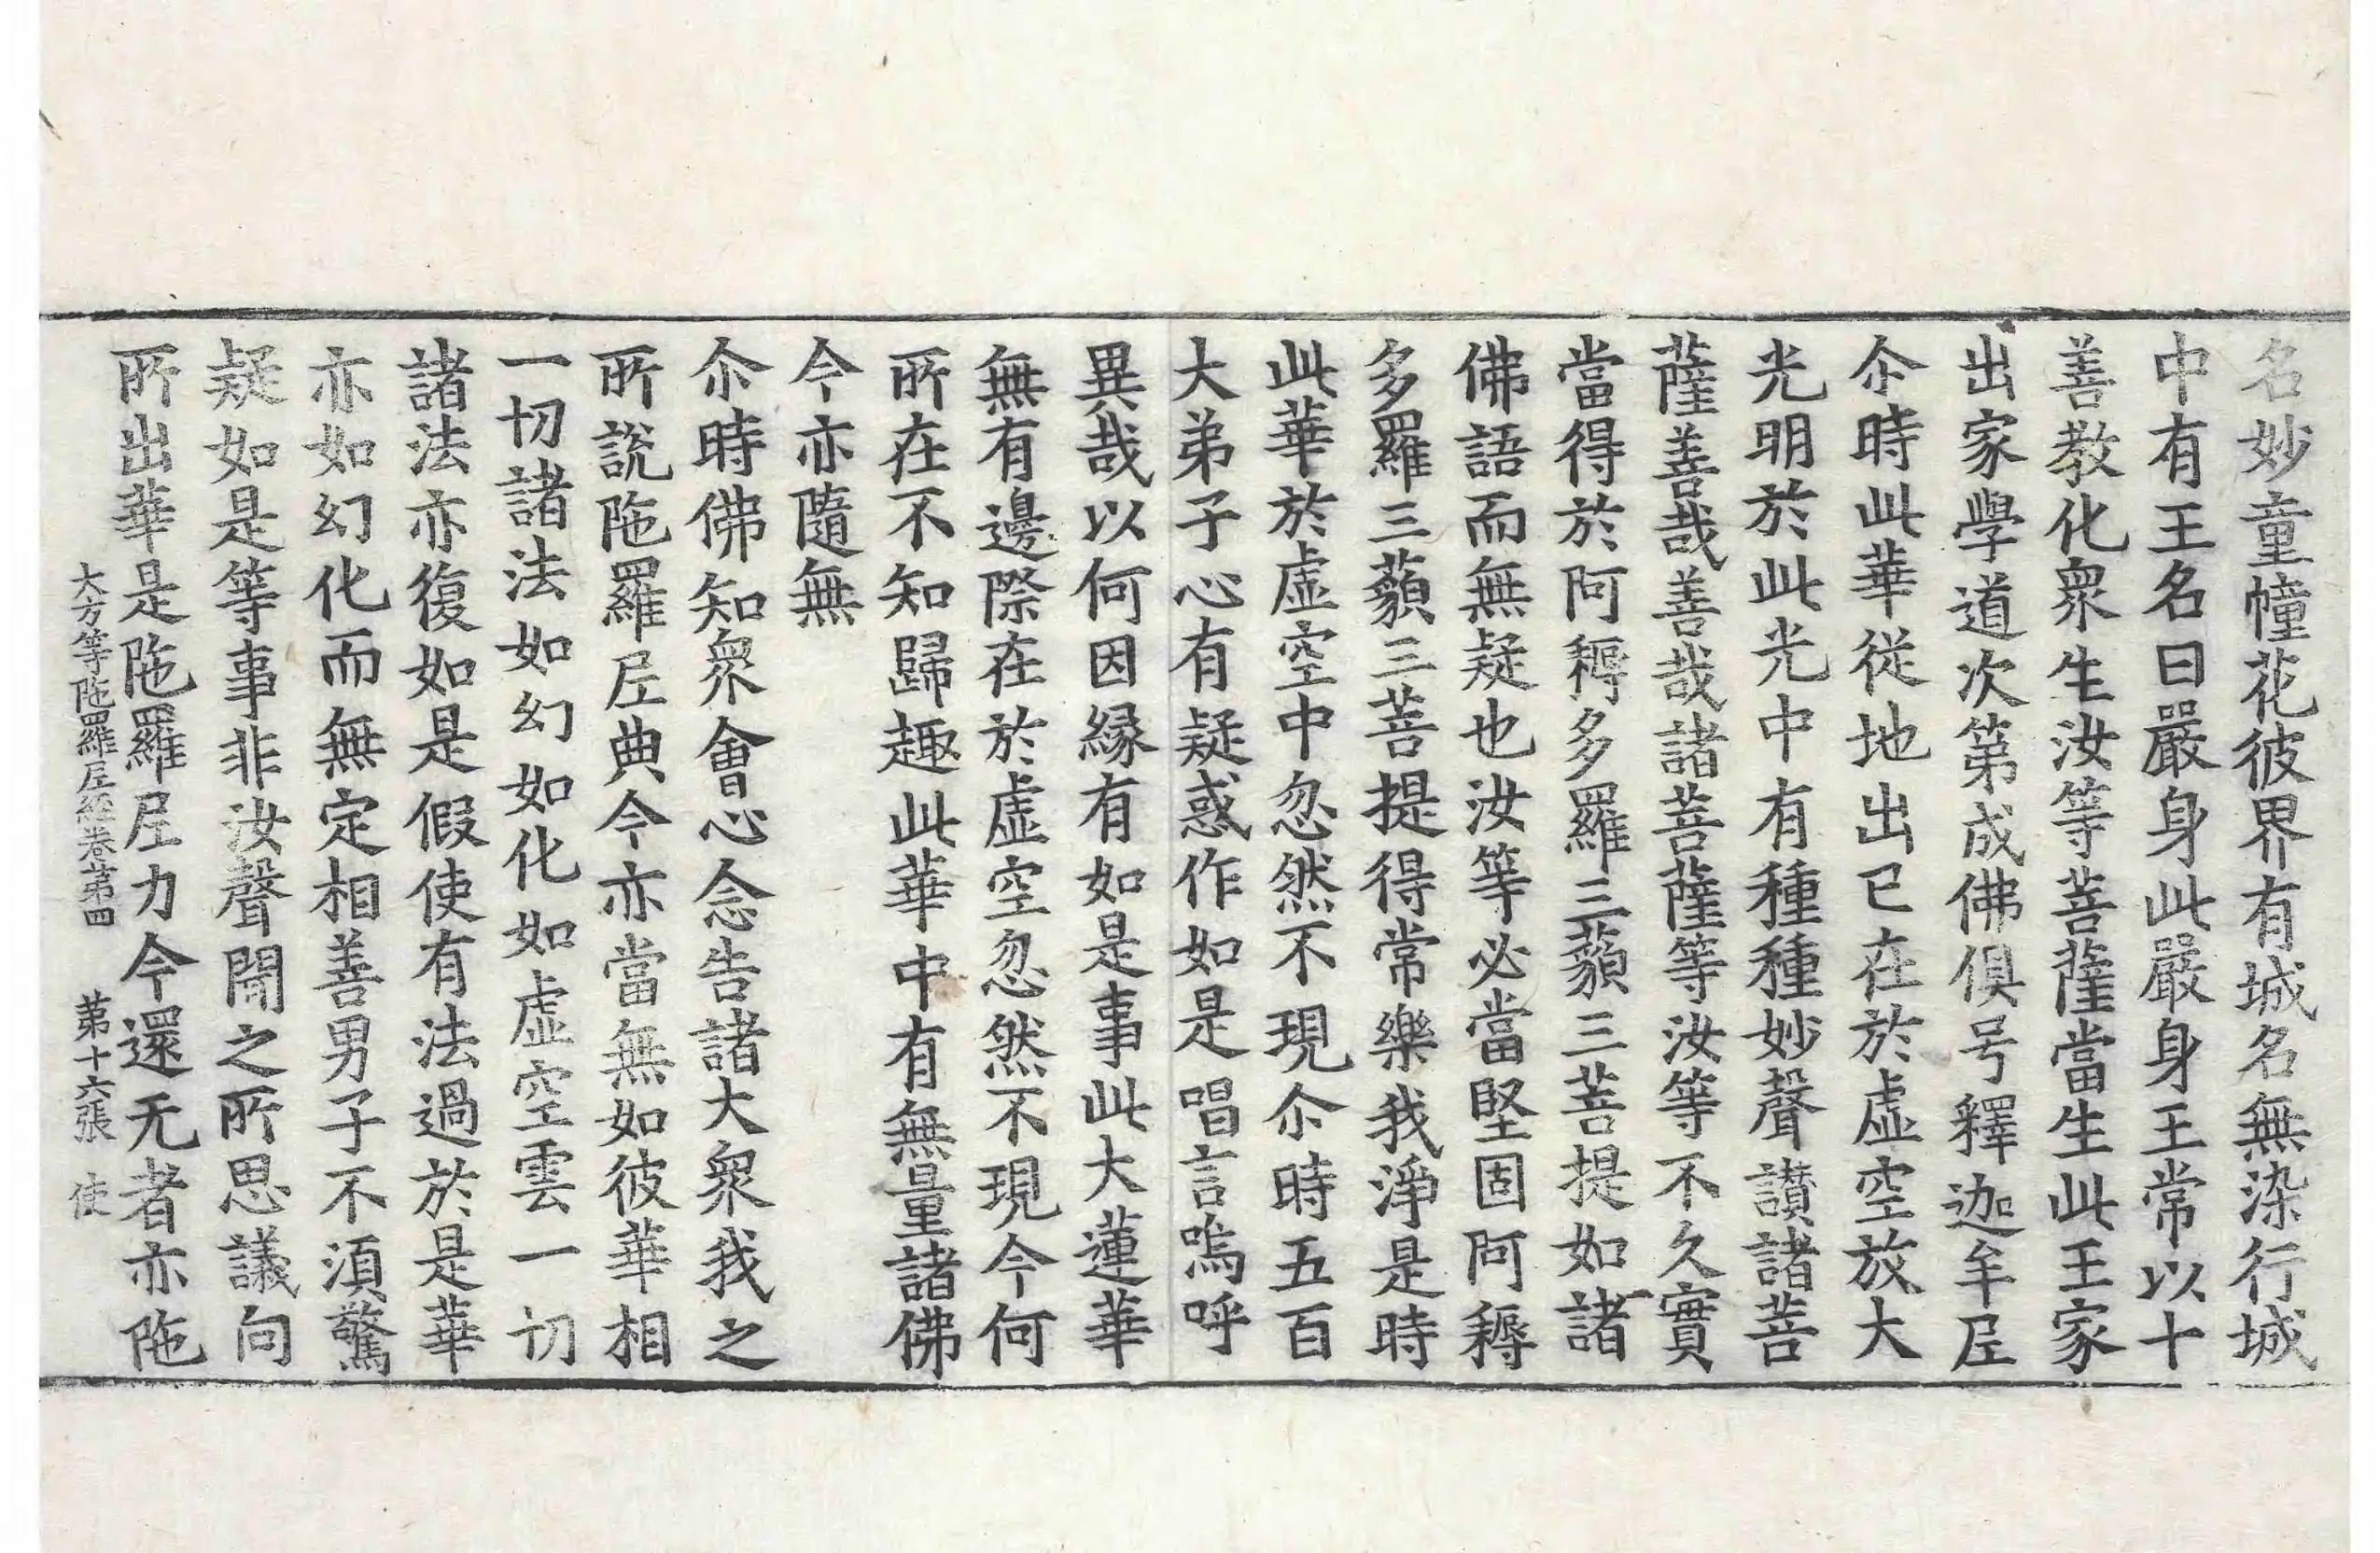 名妙童幢花彼界有城名無染行城
中有王名曰嚴身此嚴身王常以十
善教化衆生汝等菩薩當生此王家
出家學道次第成佛俱号釋迦牟𡰱
尒時此華從地出已在於虛空放大
光明於此光中有種種妙聲讃諸菩
薩善哉善哉諸菩薩等汝等不久實
當得於阿耨多羅三藐三菩提如諸
佛語而無疑也汝等必當堅固阿耨
多羅三藐三菩提得常樂我淨是時
此華於虛空中忽然不現尒時五百
大弟子心有疑惑作如是唱言嗚呼
異哉以何因縁有如是事此大蓮華
無有邊際在於虛空忽然不現今何
所在不知歸趣此華中有無量諸佛
今亦隨無
尒時佛知衆會心念告諸大衆我之
所說陁羅𡰱典今亦當無如彼華相
一切諸法如幻如化如虛空雲一切
諸法亦復如是假使有法過於是華
亦如幻化而無定相善男子不湏驚
疑如是等事非汝聲聞之所思議向
所出華是陁羅𡰱力今還无者亦陁
大方等陁羅𡰱經卷苐四 苐十六張 使